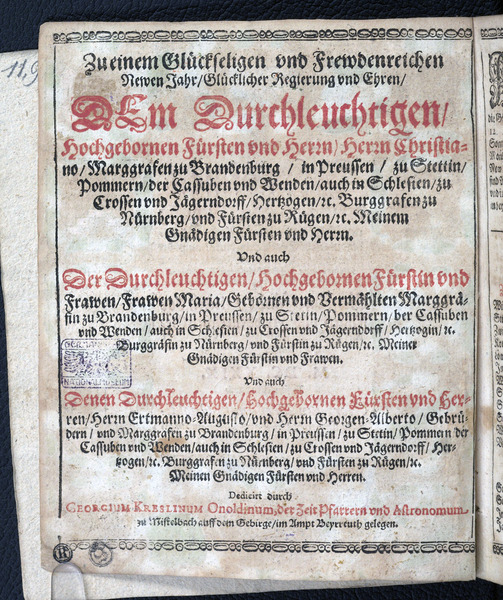 11,9
Zu einem Glückseligen vnd Frewdenreichen
Newen Jahr/ Glücklicher Regierung vnd Ehren/
DEm Durchleuchtigen/
Hochgebornen Fürsten vnd Herrn/ Herrn Christia-
no/ Marggrafen zu Brandenburg / in Preussen / zu Stettin/
Pommern/ der Cassuben vnd Wenden/ auch in Schlesien/ zu
Crossen vnd Jägerndorff/ Hertzogen/ ꝛc. Burggrafen zu
Nürnberg/ vnd Fürsten zu Rügen/ ꝛc. Meinem
Gnädigen Fürsten vnd Herrn.
Vnd auch
Der Durchleuchtigen/ Hochgebornen Fürstin vnd
Frawen/ Frawen Maria/ Gebornen vnd Vermählten Marggrä-
fin zu Brandenburg/ in Preussen/ zu Stetin/ Pommern/ der Cassuben
vnd Wenden/ auch in Schlesien/ zu Crossen vnd Jägerndorff/ Hertzogin/ ꝛc.
Burggräfin zu Nürnberg/ vnd Fürstin zu Rügen/ ꝛc. Meiner
Gnädigen Fürstin vnd Frawen.
Vnd auch
Denen Durchleuchtigen/ Hochgebornen Fürsten vnd Her-
ren/ Herrn Ertmanno-Augusto/ vnd Herrn Georgen-Alberto/ Gebrü-
dern/ vnd Marggrafen zu Brandenburg/ in Preussen/ zu Stetin/ Pommern der
Cassuben vnd Wenden/ auch in Schlesien/ zu Crossen vnd Jägerndorff/ Her-
tzogen/ ꝛc. Burggrafen zu Nürnberg/ vnd Fürsten zu Rügen/ ꝛc.
Meinen Gnädigen Fürsten vnd Herren.
Dedicirt durch
GEORGIUM KRESLINUM Onoldinum, der Zeit Pfarrern vnd Astronomum
zu Mistelbach auff dem Gebirge/ im Ampt Beyrreuth gelegen.
GERMAN
NATIONALMUSEUM